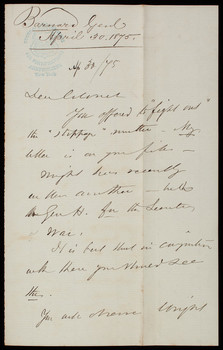 Barnard Genl
April 30. 1875.
Ap 30/75
Dear Colonel
You offered to "fight out"
the "stoppage" matter — My
letter is on your files —
Wright has recently
written another — to
Gen H. for the Secretary
War.
It is best that in conjunction
with these you should see
the
You will observe Wright